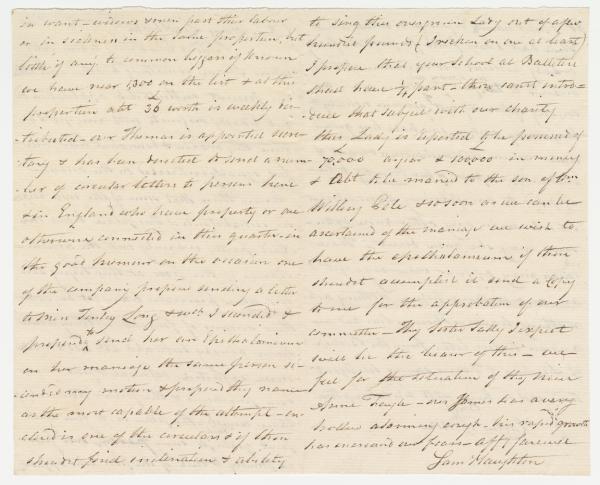 in want – widows & men past their labour
or in sickness in the same proportion, but
little if any to common beggars if known
we have near 1,300 on the list & at this
proportion abt £36 worth is weekly dis-
tributed – our Thomas is appointed secre-
tary & has been directed to send a num-
ber of circular letters to persons here
& in England who have property or are
otherwise connected in this quarter – in
the good humour on the occasion one
of the company propos'd sending a letter
to Miss Tylney Long & wch I seconded &
proposed to send her an Epithalamium
on her marriage the same person se-
conded my motion & proposed thy name
as the most capable of the attempt – en-
closed is one of the circulars & if thou
shouldst find inclination & ability
to sing this overgrown Lady out of a few
hundred pounds (I reckon on one at least)
I propose that your School at Ballitore
shall have part – thou canst intro-
duce that subject with our charity
this Lady is reported to be possessed of
£70,000 a year & £100,000 in money
& abt to be married to the son of
Willbury Cole & so soon as we can be
ascertained of the marriage we wish to
have the epithalamium if thou
shouldst accomplish it send a Copy
to me for the approbation of our
committee – Thy Sister Sally I expect
will be the bearer of this – we
feel for the situation of thy Niece
Anne Feugle – our James has a very
hollow alarming cough – his rapid growth
has increased our fears – affy farewell
Saml Haughton